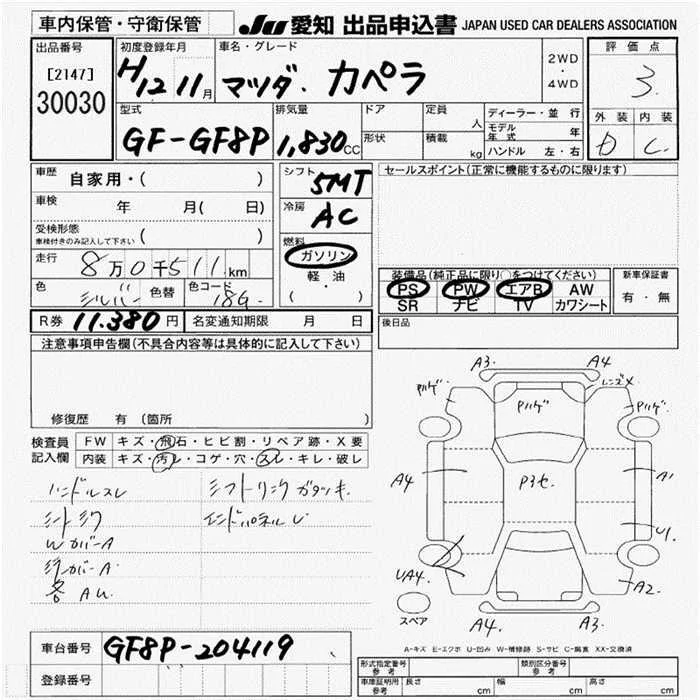 車内保管・守衛保管
JU 愛知 出品申込書 JAPAN USED CAR DEALERS ASSOCIATION
出品番号
[2147]
30030
初度登録年月
H12 11月
車名・グレード
マツダ・カペラ
2WD
・
4WD
評価点
3.
外装 内装
D C
型式
GF-GF8P
排気量
1,830CC
ドア
形状
定員 人
積載 kg
ディーラー・並行
モデル年式 年
ハンドル 左・右
車歴
自家用・( )
車検
年 月( 日)
受検形態
車検付きのみ記入して下さい ( )
走行
8万0千511km
色
シルバー
色替
色コード
18G
シフト
5MT
冷房
AC
燃料
ガソリン
軽・油
( )
セールスポイント(正常に機能するものに限ります)
装備品(純正品に限り○をつけてください)
PS PW エアB AW
SR ナビ TV カワシート
新車保証書
有・無
R券 11.380円
名変通知期限 月 日
後日品
注意事項申告欄(不具合内容等は具体的に記入して下さい)
修復歴 有 (箇所 )
検査員記入欄
FW キズ・飛石・ヒビ割・リペア跡・X要
内装 キズ・汚レ・コゲ・穴・スレ・キレ・破レ
ハンドルスレ
シフトリンクガタツキ
シートシワ
エンドパネルU
WカバーA
各AU
A3
A4
Pハゲ
レンズX
Pハゲ
Pハゲ
A4
P3セ
A1
U1
UA4
A2
A4
A3
スペア
A-キズ E-エクボ U-凹み W-補修跡 S-サビ C-腐食 XX-交換済
車台番号
GF8P-204119
登録番号
形式指定番号
参考
類別区分番号
参考
車庫証明用
参考
長さ cm 幅 cm 高さ cm